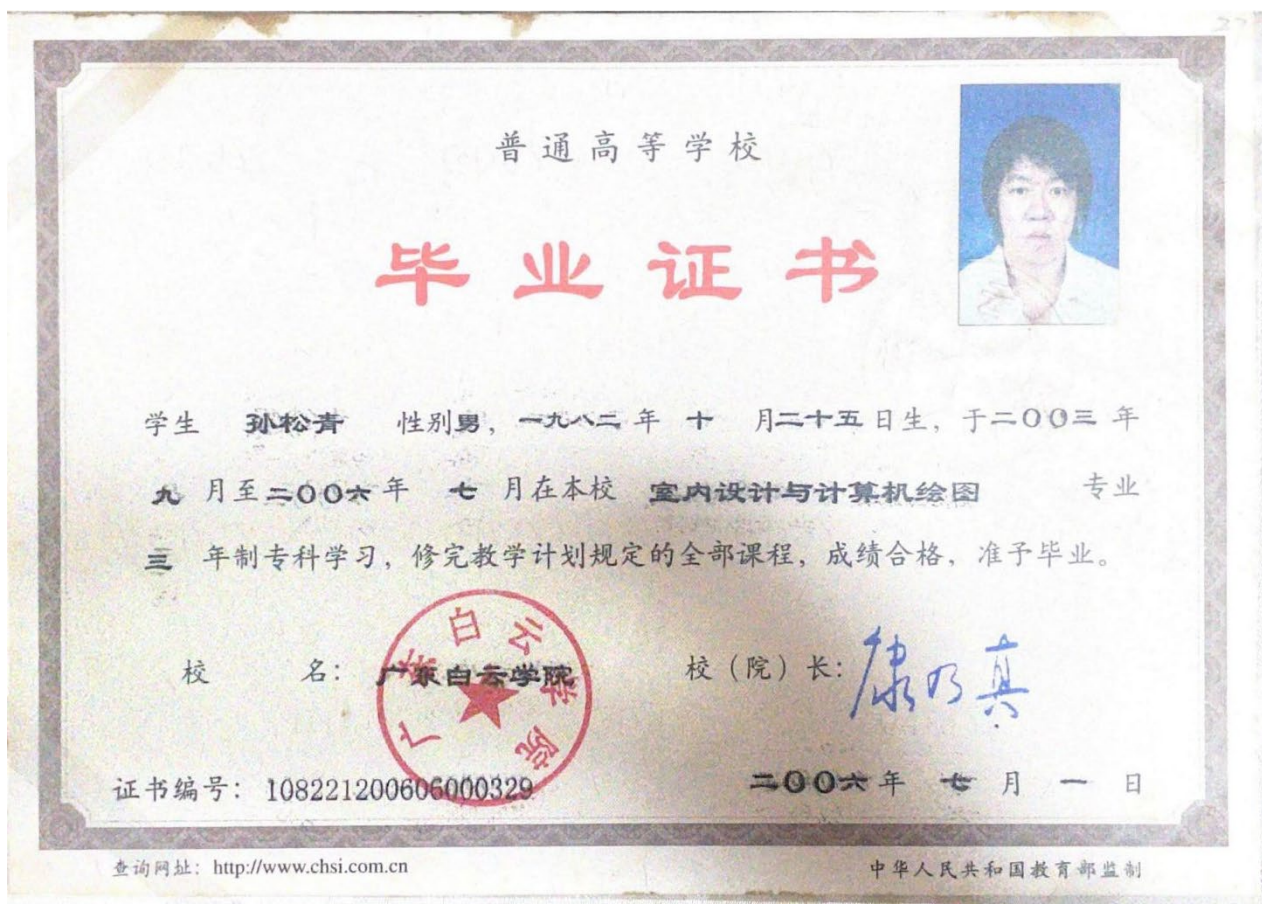 普通高等学校
毕业证书
学生 孙松青 性别男，一九八二年 十 月二十五日生，于二〇〇三年
九 月至二〇〇六年 七 月在本校 室内设计与计算机绘图 专业
三 年制专科学习，修完教学计划规定的全部课程，成绩合格，准予毕业。
校 名：广东白云学院
校（院）长：康乃真
广东白云学院
证书编号：108221200606000329
二〇〇六年 七 月 一 日
查询网址：http://www.chsi.com.cn
中华人民共和国教育部监制